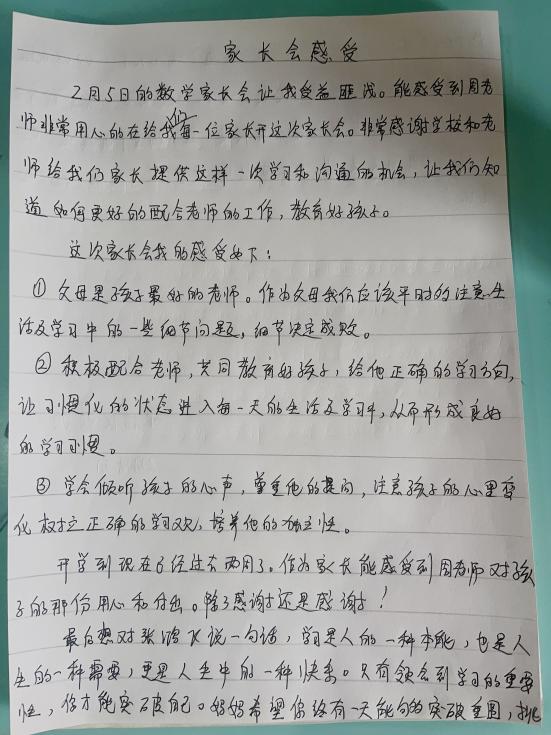 家长会感受
2月5日的数学家长会让我受益匪浅。能感受到周老
师非常用心的在给我们每一位家长开这次家长会。非常感谢学校和老
师给我们家长提供这样一次学习和沟通的机会，让我们知
道如何更好的配合老师的工作，教育好孩子。
这次家长会我的感受如下：
① 父母是孩子最好的老师。作为父母我们应该平时的注意生
活及学习中的一些细节问题，细节决定成败。
② 积极配合老师，共同教育好孩子，给他正确的学习方向，
让习惯化的状态进入每一天的生活及学习中，从而形成良好
的学习习惯。
③ 学会倾听孩子的心声，尊重他的提问，注意孩子的心里变
化树立正确的学习观，培养他的独立性。
开学到现在已经过去两周了。作为家长能感受到周老师对孩
子的那份用心和付出。除了感谢还是感谢！
最后想对张鸿飞说一句话，学习是人的一种本能，也是人
生的一种需要，更是人生中的一种快乐。只有领会到学习的重要
性，你才能突破自己。妈妈希望你终有一天能够突破重围，